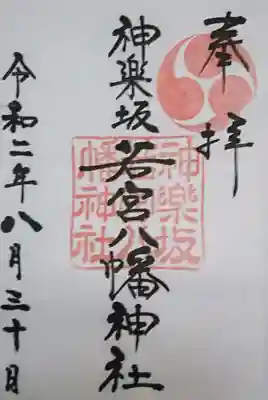 奉拝
神楽坂
若宮八幡神社
令和二年八月三十日
神樂坂
若宮八
幡神社